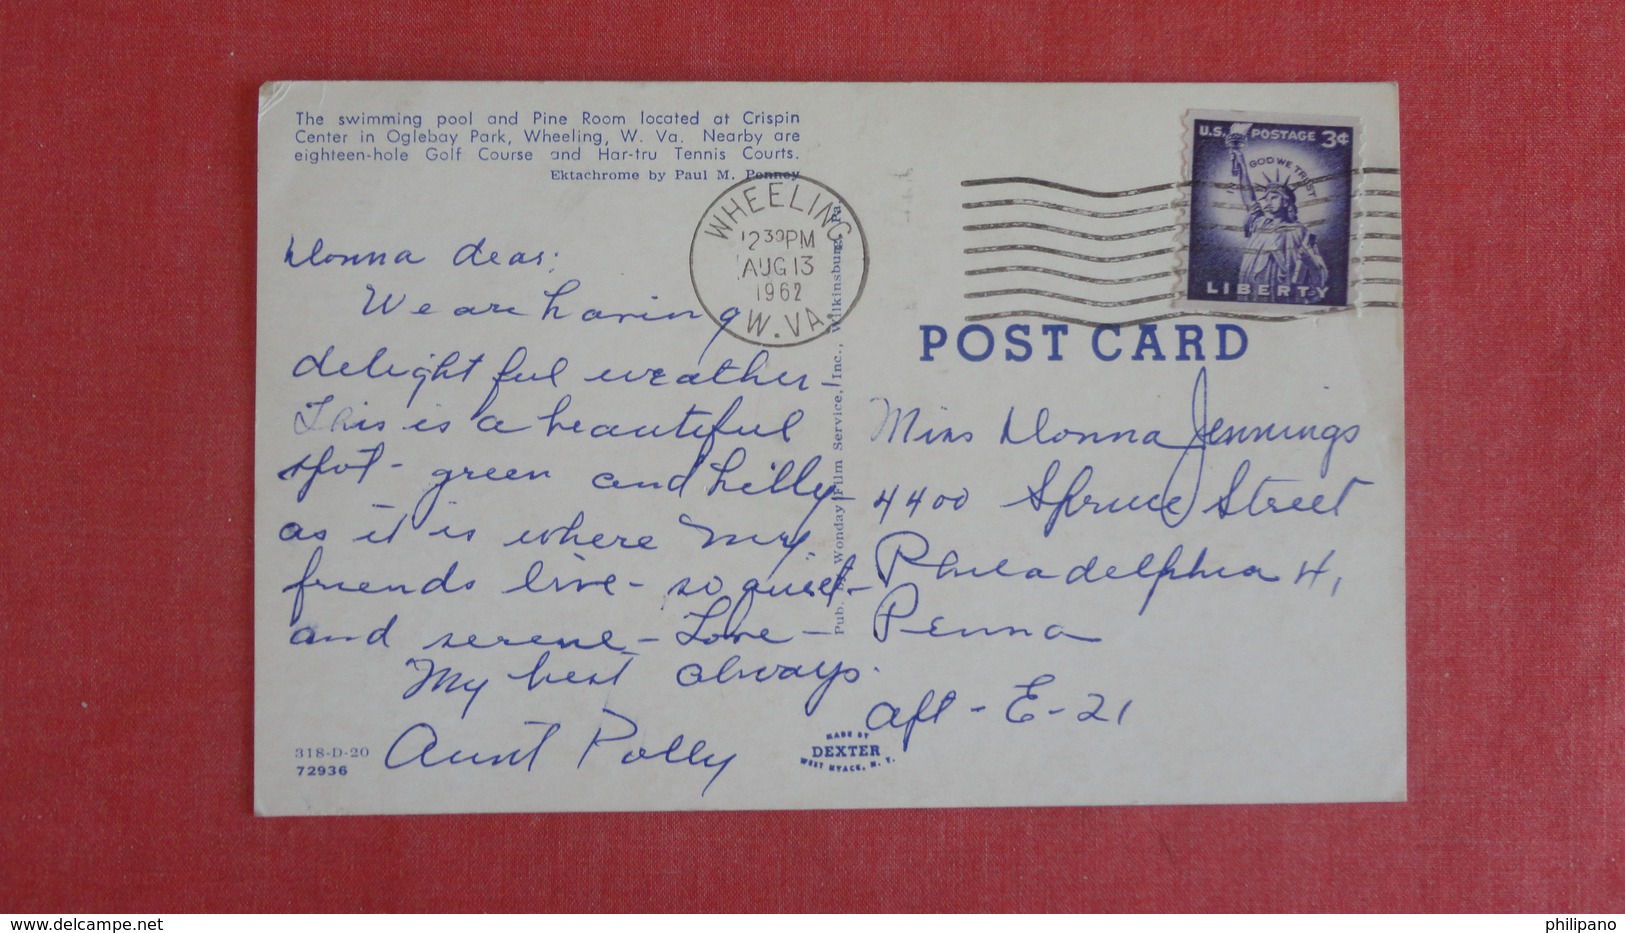 The swimming pool and Pine Room located at Crispin
Center in Oglebay Park, Wheeling, W. Va. Nearby are
eighteen-hole Golf Course and Har-tru Tennis Courts.
Ektachrome by Paul M. Penney
WHEELING
12 30 PM
AUG 13
1962
W. VA.
U.S. POSTAGE 3¢
IN GOD WE TRUST
LIBERTY
Donna dear:
We are having
delightful weather -
This is a beautiful
spot - green and hilly -
as it is where my
friends live - so quiet -
and serene - Love -
My best always.
Aunt Polly
318-D-20
72936
Pub. by Wonday Film Service, Inc., Wilkinsburg, Pa.
MADE BY
DEXTER
WEST NYACK, N. Y.
POST CARD
Miss Donna Jennings
4400 Spruce Street
Philadelphia 4,
Penna
apt - E-21
www.delcampe.net
philipano